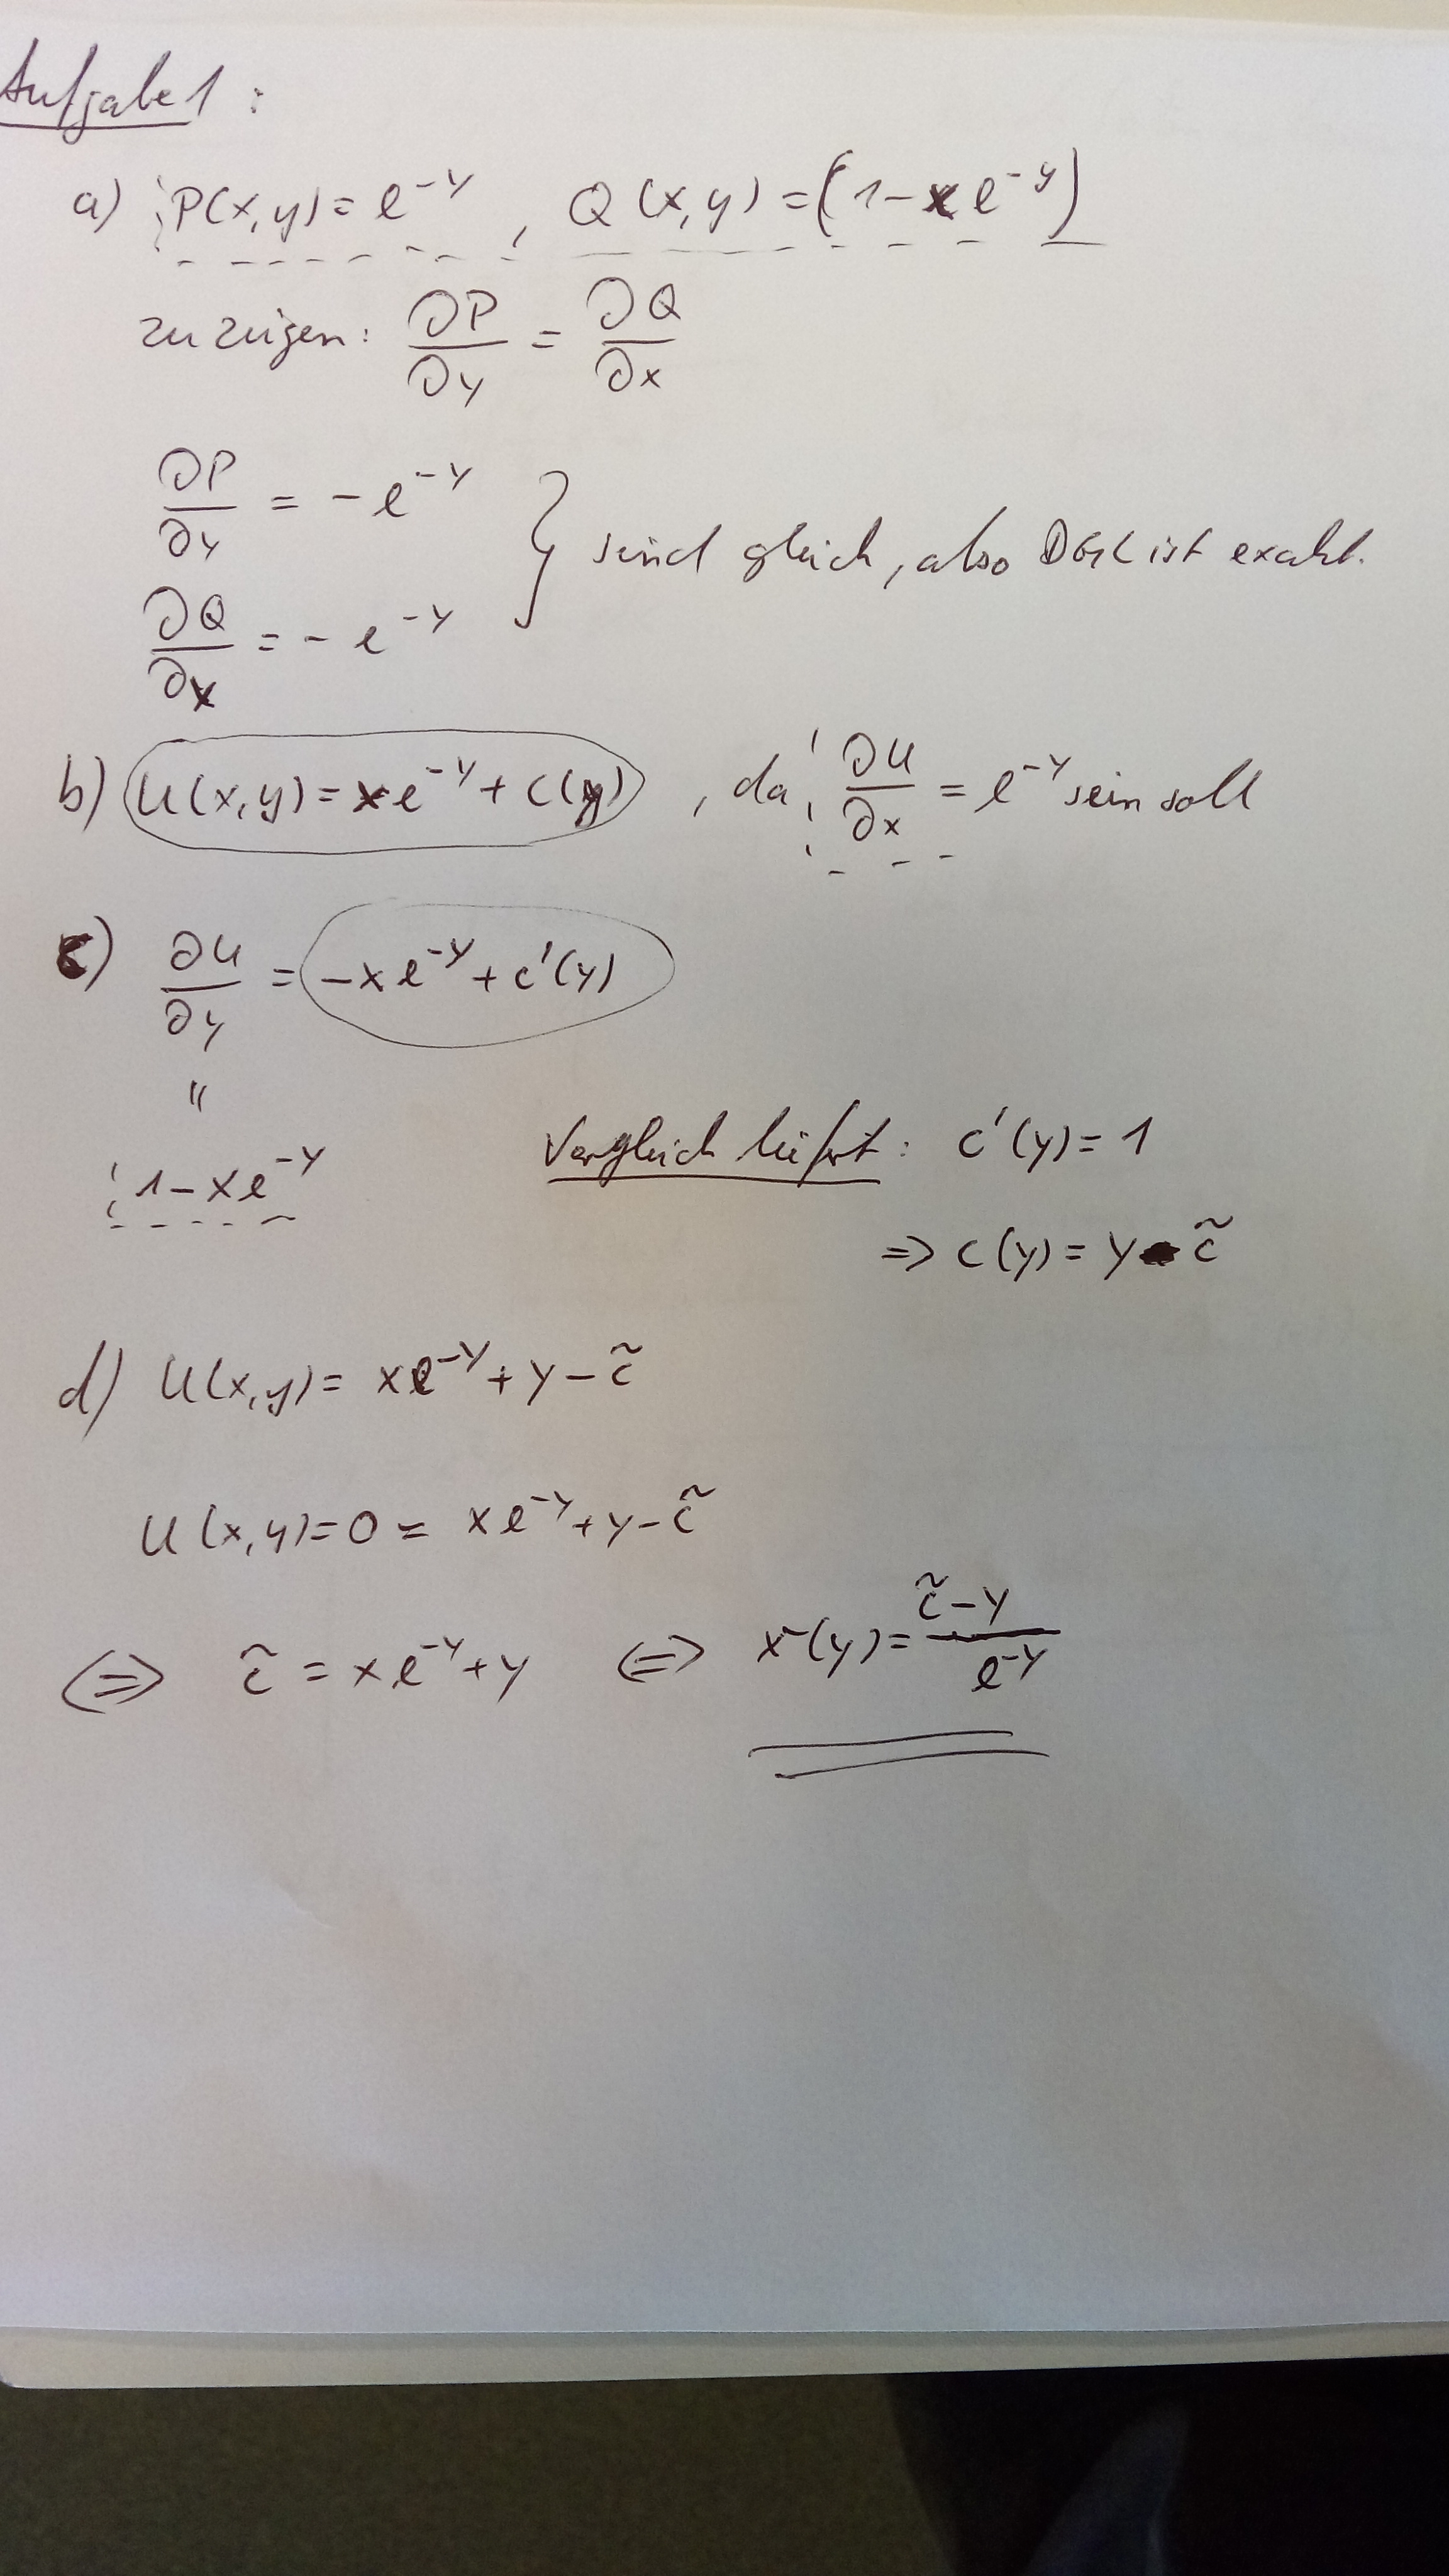 Aufgabe 1:
a) P(x,y) = e^{-y}, Q(x,y) = (1-xe^{-y})
zu zeigen: ∂P/∂y = ∂Q/∂x
∂P/∂y = -e^{-y}
} sind gleich, also DGL ist exakt.
∂Q/∂x = -e^{-y}
b) U(x,y) = xe^{-y} + c(y), da ∂U/∂x = e^{-y} sein soll
c) ∂U/∂y = -xe^{-y} + c'(y)
"
1-xe^{-y}
Vergleich liefert: c'(y) = 1
=> c(y) = y - c̃
d) U(x,y) = xe^{-y} + y - c̃
U(x,y) = 0 = xe^{-y} + y - c̃
<=> c̃ = xe^{-y} + y <=> x(y) = (c̃ - y)/e^{-y}